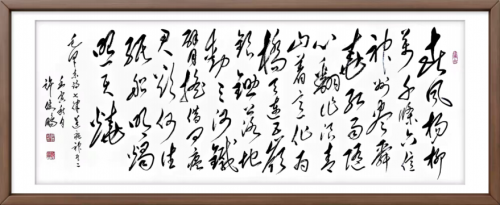 春风杨柳
万千条六亿
神州尽舜
尧红雨随
心翻作浪青
山着意化为
桥天连五岭
银锄落地
动三河铁
臂摇借问瘟
君欲何往
纸船明烛
照天烧
毛泽东诗七律送瘟神其二
壬寅秋月
许